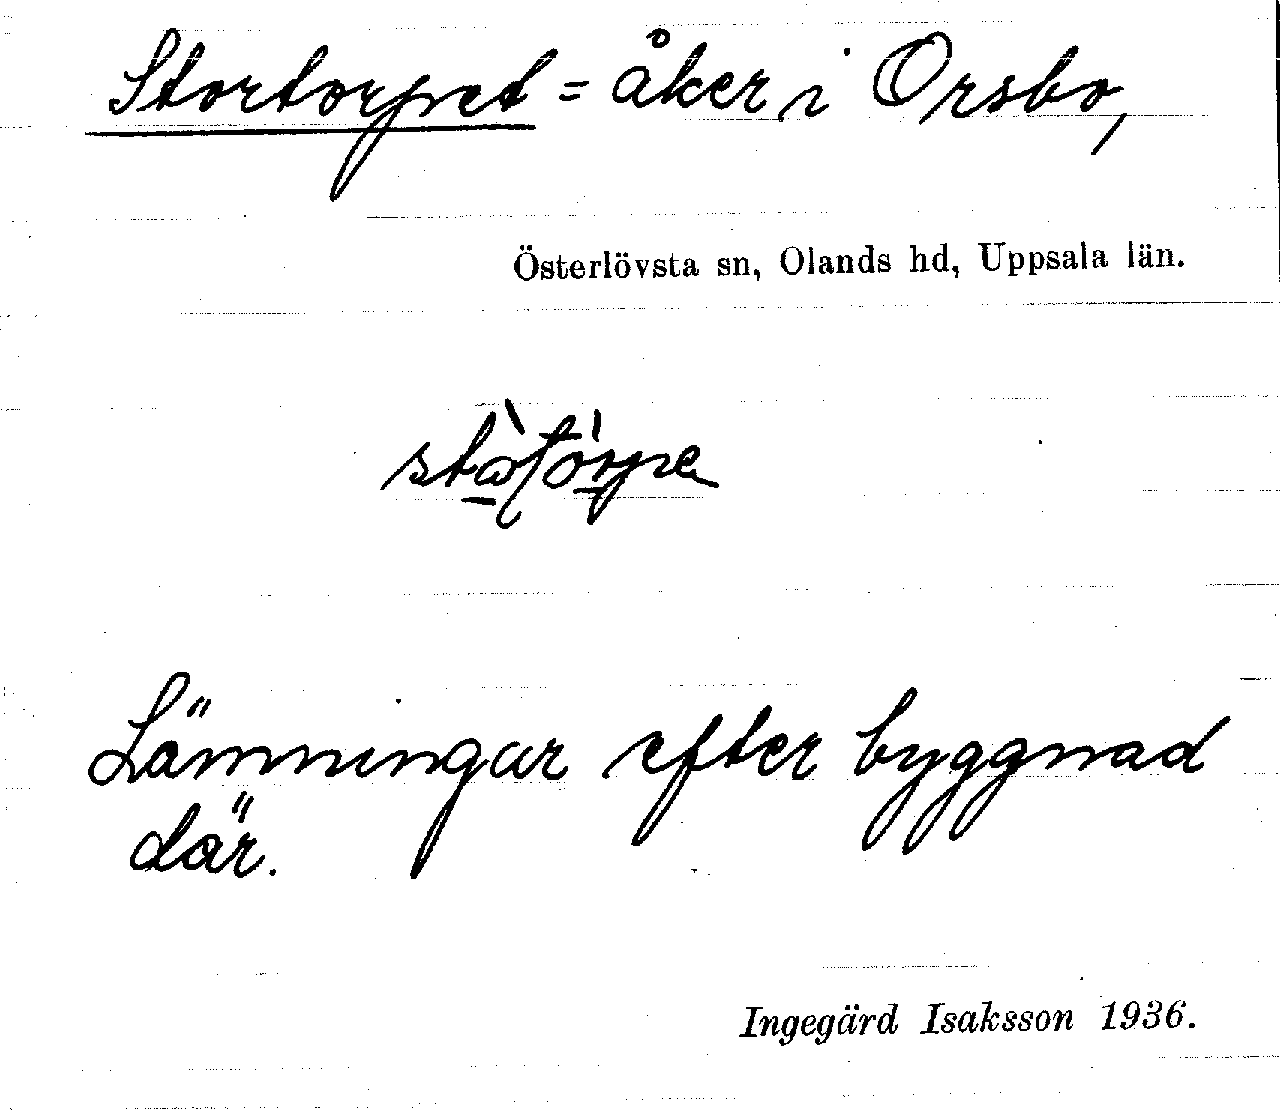 Stortorpet = åker i Orsbo,
Österlövsta sn, Olands hd, Uppsala län.
Lämningar efter byggnad
där.
Ingegärd Isaksson 1936.